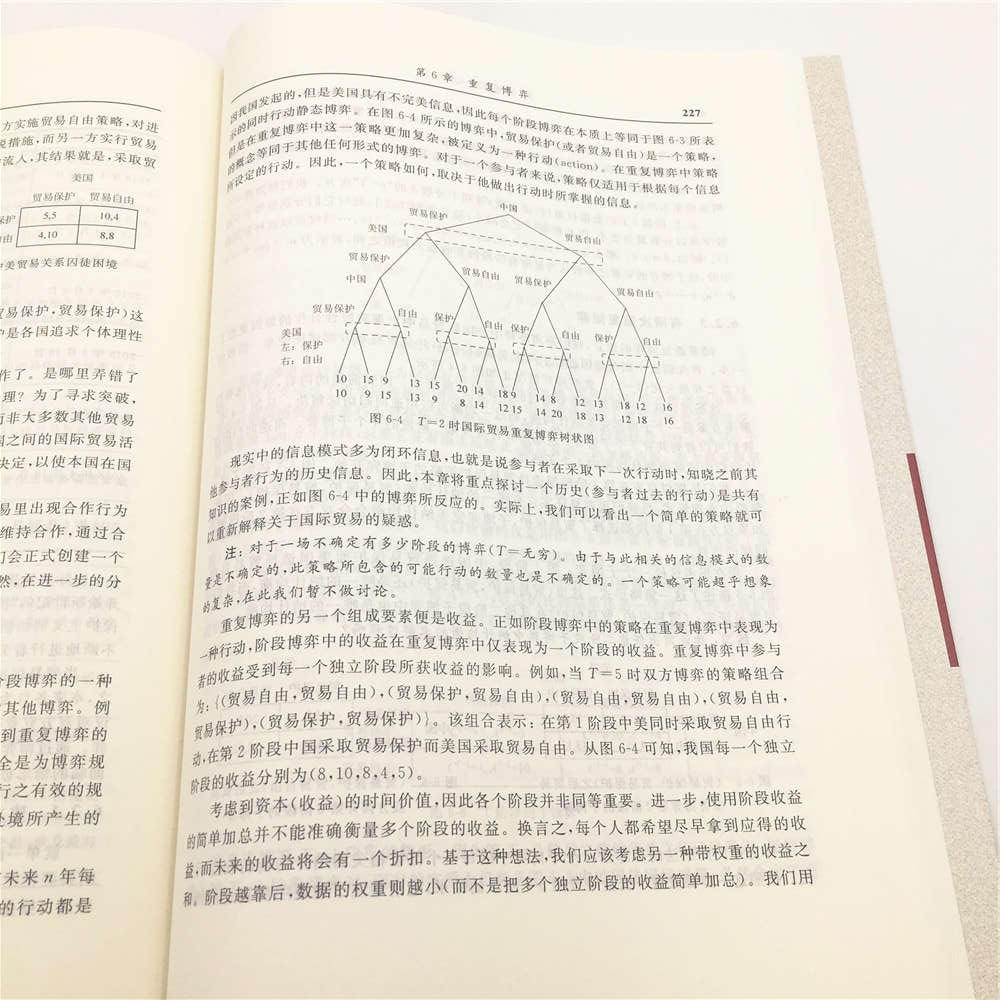 方实施贸易自由策略,对进
税措施,而另一方实行贸易
流入,其结果就是,采取贸
美国
贸易保护 贸易自由
保护 5,5 10,4
自由 4,10 8,8
中美贸易关系囚徒困境
贸易保护,贸易保护)这
护是各国追求个体理性
作了。是哪里弄错了
理?为了寻求突破,
而非大多数其他贸易
国之间的国际贸易活
决定,以使本国在国
易里出现合作行为
维持合作,通过合
们会正式创建一个
然,在进一步的分
阶段博弈的一种
其他博弈。例
到重复博弈的
全是为博弈规
行之有效的规
处境所产生的
未来 n 年每
的行动都是
第 6 章 重复博弈
227
因我国发起的,但是美国具有不完美信息,因此每个阶段博弈在本质上等同于图 6-3 所表
示的同时行动静态博弈。在图 6-4 所示的博弈中,贸易保护(或者贸易自由)是一个策略,
但是在重复博弈中这一策略更加复杂,被定义为一种行动(action)。在重复博弈中策略
的概念等同于其他任何形式的博弈。对于一个参与者来说,策略仅适用于根据每个信息
所设定的行动。因此,一个策略如何,取决于他做出行动时所掌握的信息。
中国
贸易保护 贸易自由
美国
贸易保护 贸易自由 贸易保护 贸易自由
中国
贸易保护 自由 保护 自由 保护 自由 保护 自由
美国
左:保护
右:自由
10 15 9 13 15 20 14 18 9 14 8 12 13 18 12 16
10 9 15 13 9 8 14 12 15 14 20 18 13 12 18 16
图 6-4 T=2 时国际贸易重复博弈树状图
现实中的信息模式多为闭环信息,也就是说参与者在采取下一次行动时,知晓之前其
他参与者行为的历史信息。因此,本章将重点探讨一个历史(参与者过去的行动)是共有
知识的案例,正如图 6-4 中的博弈所反应的。实际上,我们可以看出一个简单的策略就可
以重新解释关于国际贸易的疑惑。
注:对于一场不确定有多少阶段的博弈(T=无穷)。由于与此相关的信息模式的数
量是不确定的,此策略所包含的可能行动的数量也是不确定的。一个策略可能超乎想象
的复杂,在此我们暂不做讨论。
重复博弈的另一个组成要素便是收益。正如阶段博弈中的策略在重复博弈中表现为
一种行动,阶段博弈中的收益在重复博弈中仅表现为一个阶段的收益。重复博弈中参与
者的收益受到每一个独立阶段所获收益的影响。例如,当 T=5 时双方博弈的策略组合
为:{(贸易自由,贸易自由),(贸易保护,贸易自由),(贸易自由,贸易自由),(贸易自由,
贸易保护),(贸易保护,贸易保护)}。该组合表示:在第 1 阶段中美同时采取贸易自由行
动,在第 2 阶段中国采取贸易保护而美国采取贸易自由。从图 6-4 可知,我国每一个独立
阶段的收益分别为(8,10,8,4,5)。
考虑到资本(收益)的时间价值,因此各个阶段并非同等重要。进一步,使用阶段收益
的简单加总并不能准确衡量多个阶段的收益。换言之,每个人都希望尽早拿到应得的收
益,而未来的收益将会有一个折扣。基于这种想法,我们应该考虑另一种带权重的收益之
和。阶段越靠后,数据的权重则越小(而不是把多个独立阶段的收益简单加总)。我们用